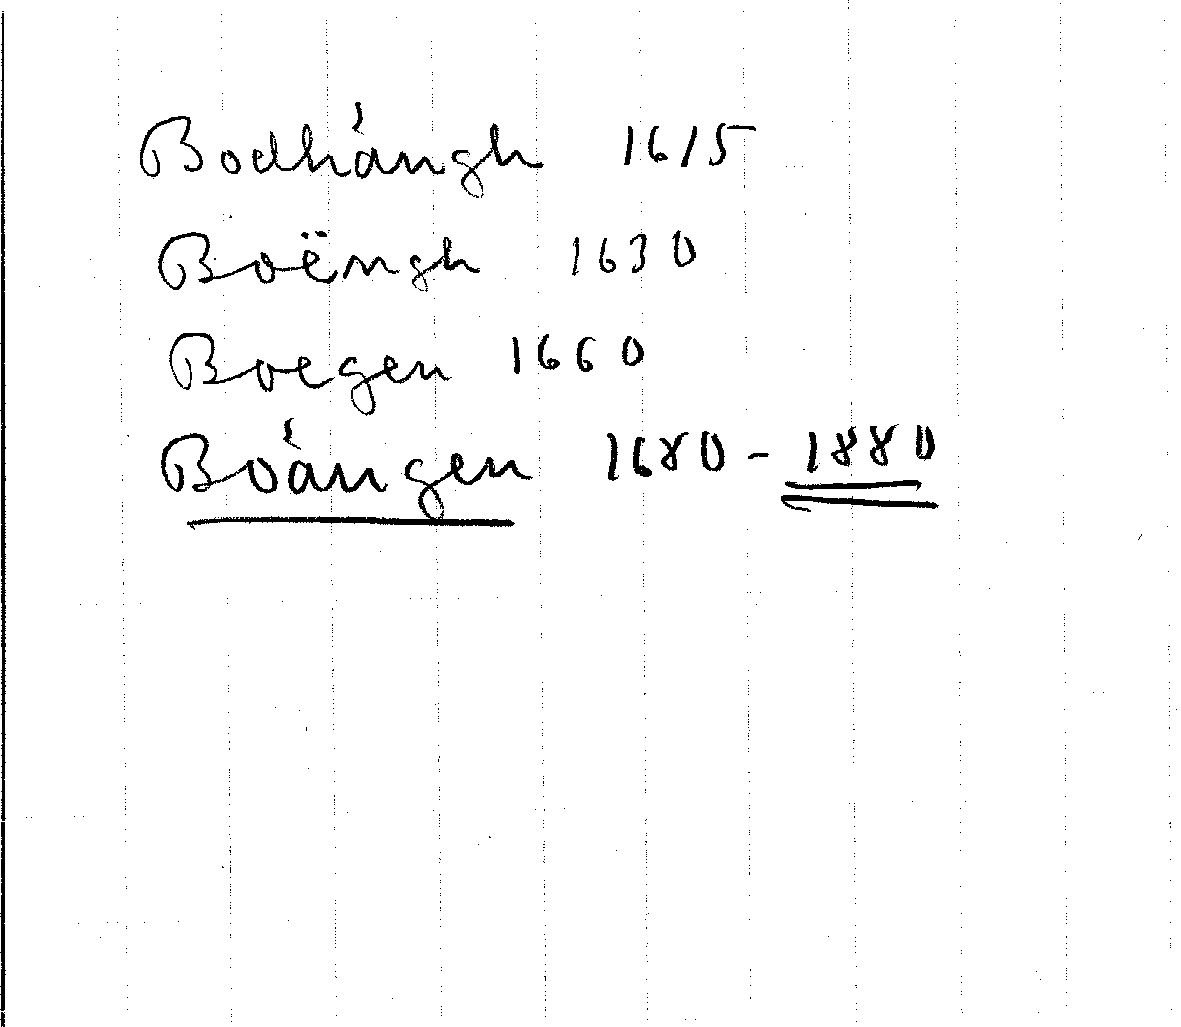 Bodhångh 1615
Boëngh 1630
Boegen 1660
Boången 1680 - 1880